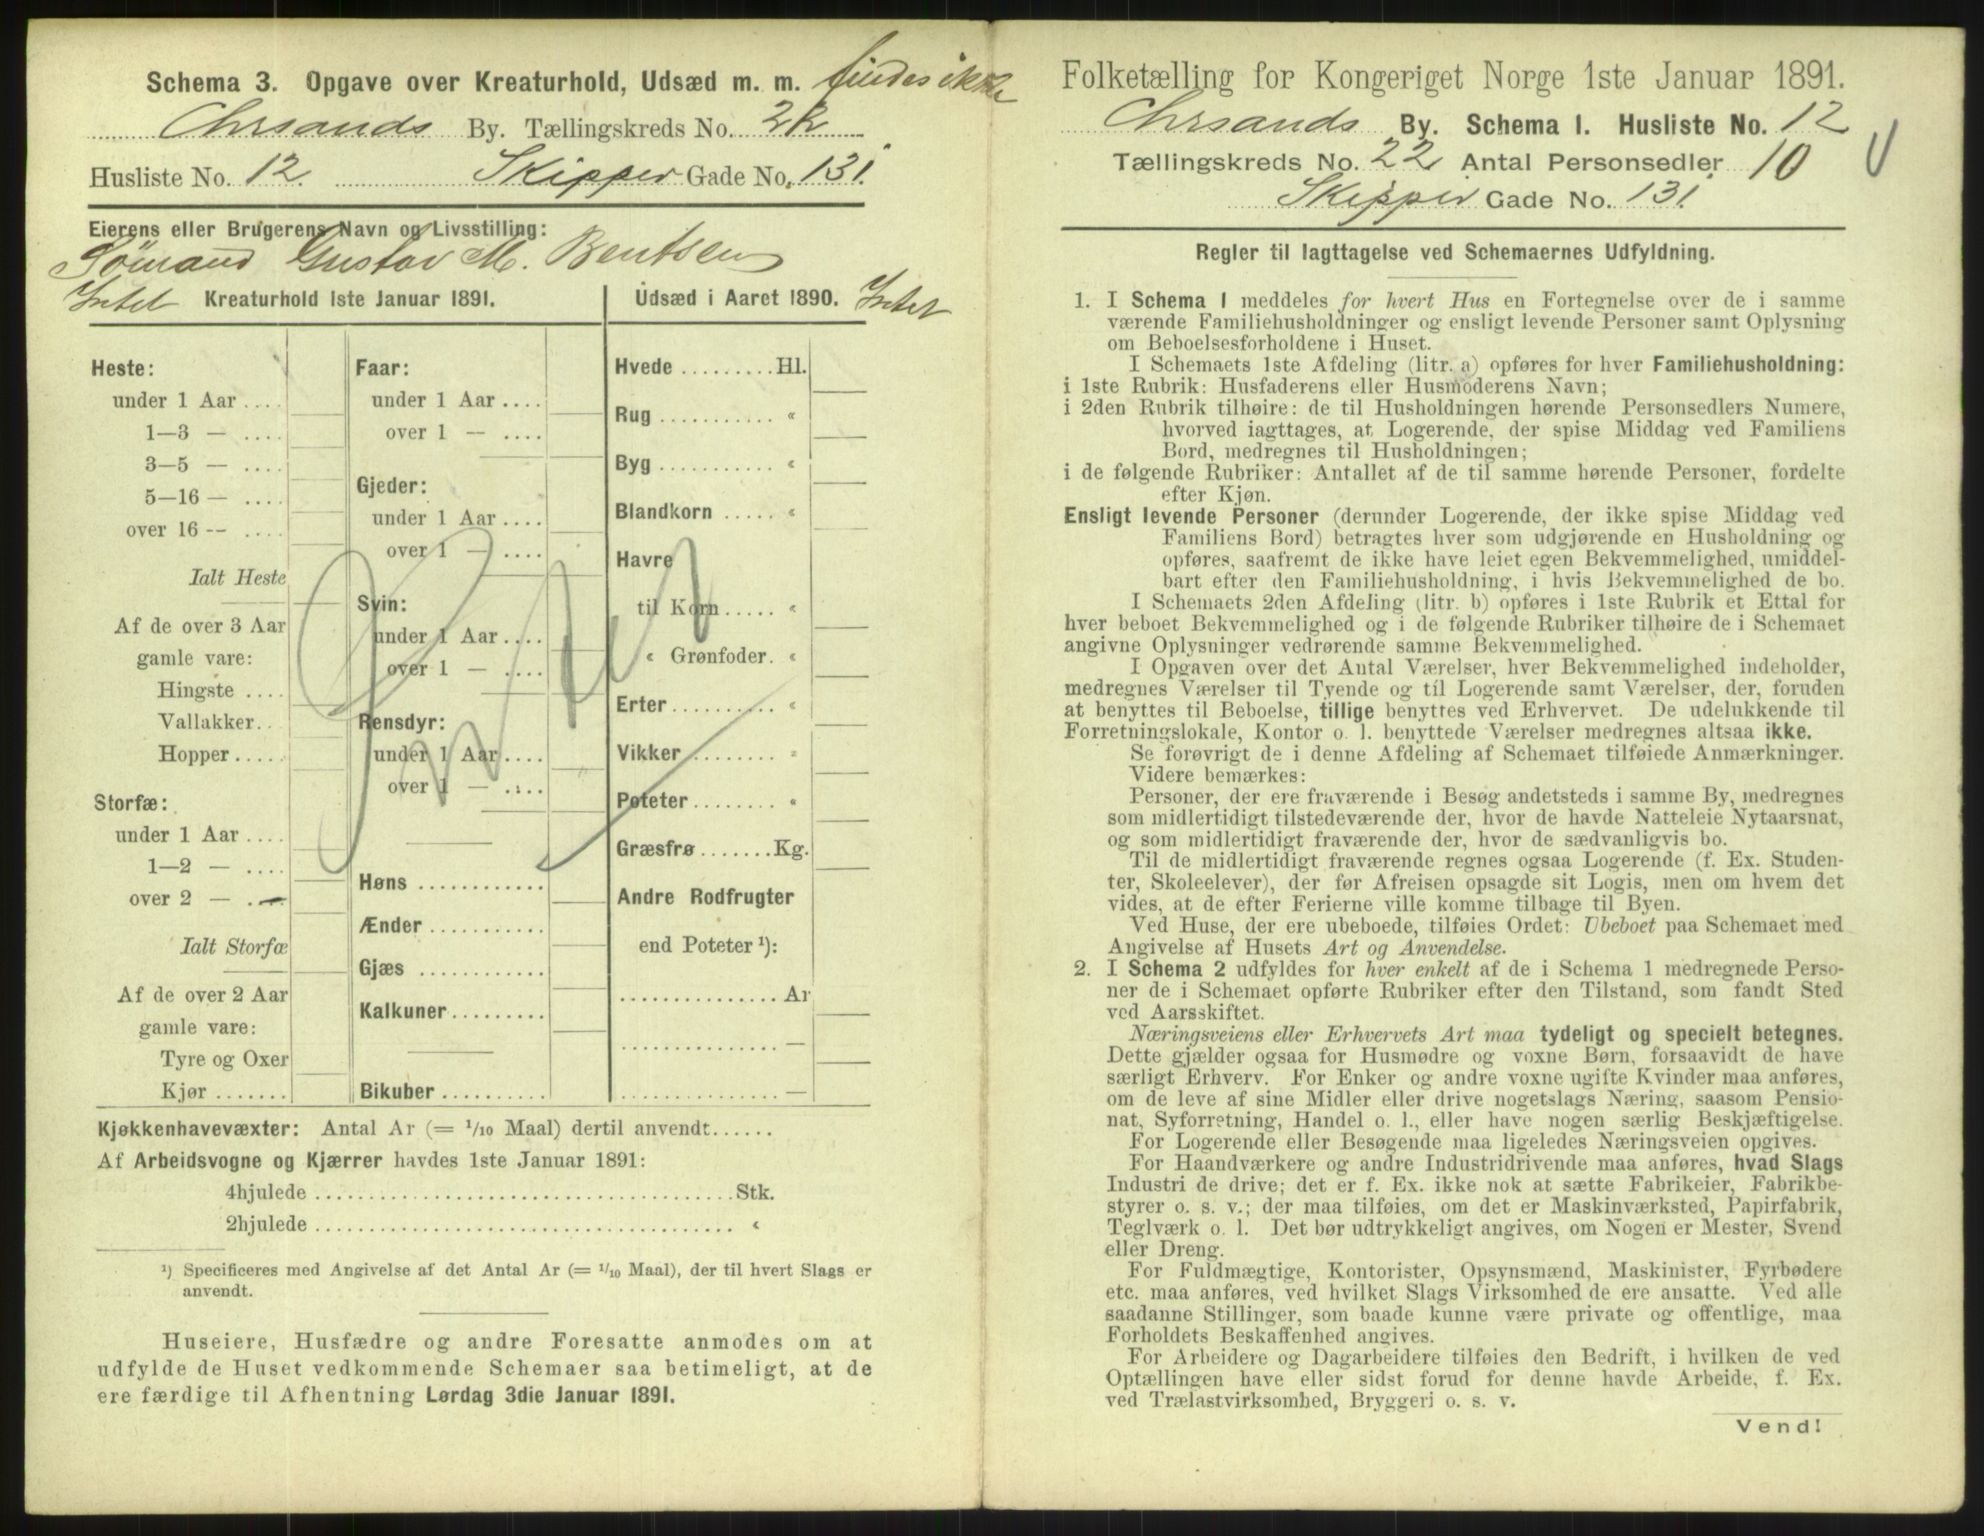 Schema 3. Opgave over Kreaturhold, Udsæd m. m. findes ikke
Chrsands By. Tællingskreds No. 22
Husliste No. 12. Skipper Gade No. 131.
Eierens eller Brugerens Navn og Livsstilling:
Sömand Gustav M. Bentsen
Intet Kreaturhold 1ste Januar 1891.
Heste:
under 1 Aar ....
1—3 — ....
3—5 — ....
5—16 — ....
over 16 -- ....
Ialt Heste
Af de over 3 Aar
gamle vare:
Hingste ....
Vallakker..
Hopper .....
Storfæ:
under 1 Aar ....
1—2 — ....
over 2 — ....
Ialt Storfæ
Af de over 2 Aar
gamle vare:
Tyre og Oxer
Kjør .......
Faar:
under 1 Aar ....
over 1 — ....
Gjeder:
under 1 Aar ....
over 1 — ....
Svin:
under 1 Aar ....
over 1 — ....
Rensdyr:
under 1 Aar ....
over 1 — ....
Høns ............
Ænder ...........
Gjæs ............
Kalkuner.........
Bikuber ..........
Udsæd i Aaret 1890. Intet
Hvede .........Hl.
Rug ........... «
Byg ........... «
Blandkorn ..... «
Havre
til Korn ..... «
« Grønfoder. «
Erter.......... «
Vikker ........ «
Poteter........ «
Græsfrø .......Kg.
Andre Rodfrugter
end Poteter ¹):
............... Ar
............... —
............... —
Kjøkkenhavevæxter: Antal Ar (= 1/10 Maal) dertil anvendt......
Af Arbeidsvogne og Kjærrer havdes 1ste Januar 1891:
4hjulede ........................................Stk.
2hjulede ........................................ «
¹) Specificeres med Angivelse af det Antal Ar (= 1/10 Maal), der til hvert Slags er
anvendt.
Huseiere, Husfædre og andre Foresatte anmodes om at
udfylde de Huset vedkommende Schemaer saa betimeligt, at de
ere færdige til Afhentning Lørdag 3die Januar 1891.
Folketælling for Kongeriget Norge 1ste Januar 1891.
Chrsands By. Schema I. Husliste No. 12
Tællingskreds No. 22 Antal Personsedler 10
Skipper Gade No. 131.
Regler til Iagttagelse ved Schemaernes Udfyldning.
1. I Schema 1 meddeles for hvert Hus en Fortegnelse over de i samme
værende Familiehusholdninger og ensligt levende Personer samt Oplysning
om Beboelsesforholdene i Huset.
I Schemaets 1ste Afdeling (litr. a) opføres for hver Familiehusholdning:
i 1ste Rubrik: Husfaderens eller Husmoderens Navn;
i 2den Rubrik tilhøire: de til Husholdningen hørende Personsedlers Numere,
hvorved iagttages, at Logerende, der spise Middag ved Familiens
Bord, medregnes til Husholdningen;
i de følgende Rubriker: Antallet af de til samme hørende Personer, fordelte
efter Kjøn.
Ensligt levende Personer (derunder Logerende, der ikke spise Middag ved
Familiens Bord) betragtes hver som udgjørende en Husholdning og
opføres, saafremt de ikke have leiet egen Bekvemmelighed, umiddel-
bart efter den Familiehusholdning, i hvis Bekvemmelighed de bo.
I Schemaets 2den Afdeling (litr. b) opføres i 1ste Rubrik et Ettal for
hver beboet Bekvemmelighed og i de følgende Rubriker tilhøire de i Schemaet
angivne Oplysninger vedrørende samme Bekvemmelighed.
I Opgaven over det Antal Værelser, hver Bekvemmelighed indeholder,
medregnes Værelser til Tyende og til Logerende samt Værelser, der, foruden
at benyttes til Beboelse, tillige benyttes ved Erhvervet. De udelukkende til
Forretningslokale, Kontor o. l. benyttede Værelser medregnes altsaa ikke.
Se forøvrigt de i denne Afdeling af Schemaet tilføiede Anmærkninger.
Videre bemærkes:
Personer, der ere fraværende i Besøg andetsteds i samme By, medregnes
som midlertidigt tilstedeværende der, hvor de havde Natteleie Nytaarsnat,
og som midlertidigt fraværende der, hvor de sædvanligvis bo.
Til de midlertidigt fraværende regnes ogsaa Logerende (f. Ex. Studen-
ter, Skoleelever), der før Afreisen opsagde sit Logis, men om hvem det
vides, at de efter Ferierne ville komme tilbage til Byen.
Ved Huse, der ere ubeboede, tilføies Ordet: Ubeboet paa Schemaet med
Angivelse af Husets Art og Anvendelse.
2. I Schema 2 udfyldes for hver enkelt af de i Schema 1 medregnede Perso-
ner de i Schemaet opførte Rubriker efter den Tilstand, som fandt Sted
ved Aarsskiftet.
Næringsveiens eller Erhvervets Art maa tydeligt og specielt betegnes.
Dette gjælder ogsaa for Husmødre og voxne Børn, forsaavidt de have
særligt Erhverv. For Enker og andre voxne ugifte Kvinder maa anføres,
om de leve af sine Midler eller drive nogetslags Næring, saasom Pensio-
nat, Syforretning, Handel o. l., eller have nogen særlig Beskjæftigelse.
For Logerende eller Besøgende maa ligeledes Næringsveien opgives.
For Haandværkere og andre Industridrivende maa anføres, hvad Slags
Industri de drive; det er f. Ex. ikke nok at sætte Fabrikeier, Fabrikbe-
styrer o. s. v.; der maa tilføies, om det er Maskinværksted, Papirfabrik,
Teglværk o. l. Det bør udtrykkeligt angives, om Nogen er Mester, Svend
eller Dreng.
For Fuldmægtige, Kontorister, Opsynsmænd, Maskinister, Fyrbødere
etc. maa anføres, ved hvilket Slags Virksomhed de ere ansatte. Ved alle
saadanne Stillinger, som baade kunne være private og offentlige, maa
Forholdets Beskaffenhed angives.
For Arbeidere og Dagarbeidere tilføies den Bedrift, i hvilken de ved
Optællingen have eller sidst forud for denne havde Arbeide, f. Ex.
ved Trælastvirksomhed, Bryggeri o. s. v.
Vend!